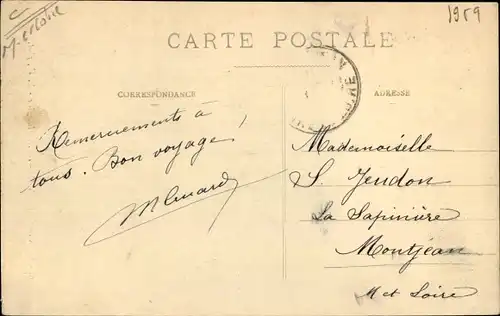 1959
M-et-Loire
CARTE POSTALE
CORRESPONDANCE
ADRESSE
Remerciements à
tous. Bon voyage!
Mademoiselle
S. Jendon
La Sapinière
Montjean
M et Loire